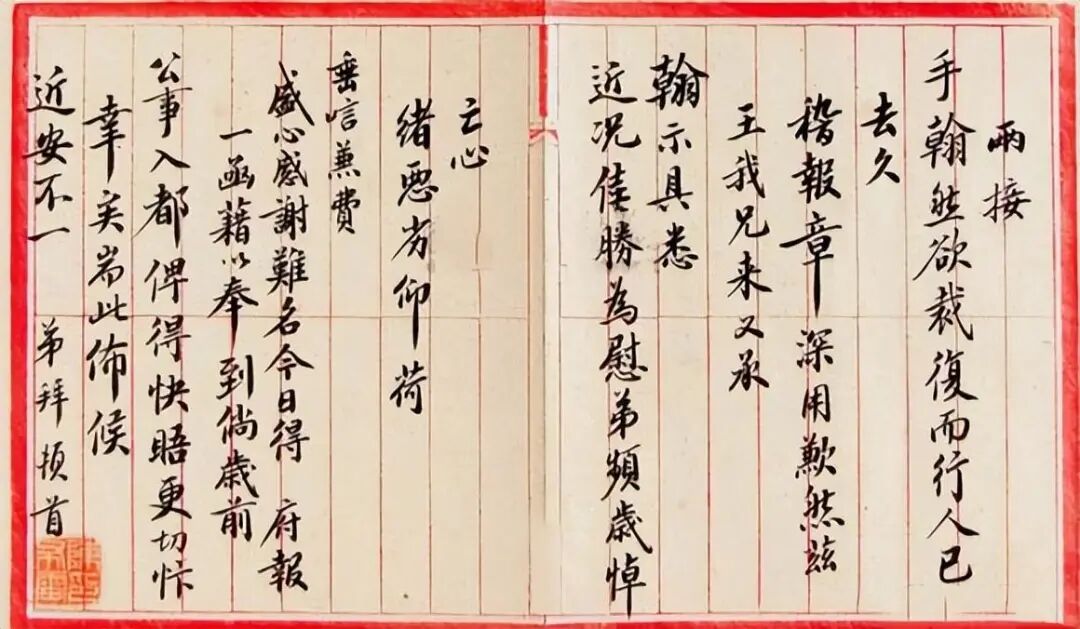 兩接
手翰亟欲裁復而行人已
去久
稽報章深用歉然茲
王我兄来又承
翰示具悉
近况佳勝為慰弟頻歲悼
亡心
緒惡劣仰荷
垂唁兼費
盛心感謝難名今日得 府報
一函藉以奉到倘歲前
公事入都俾得快晤更切忭
幸矣耑此佈候
近安不一 弟拜頓首